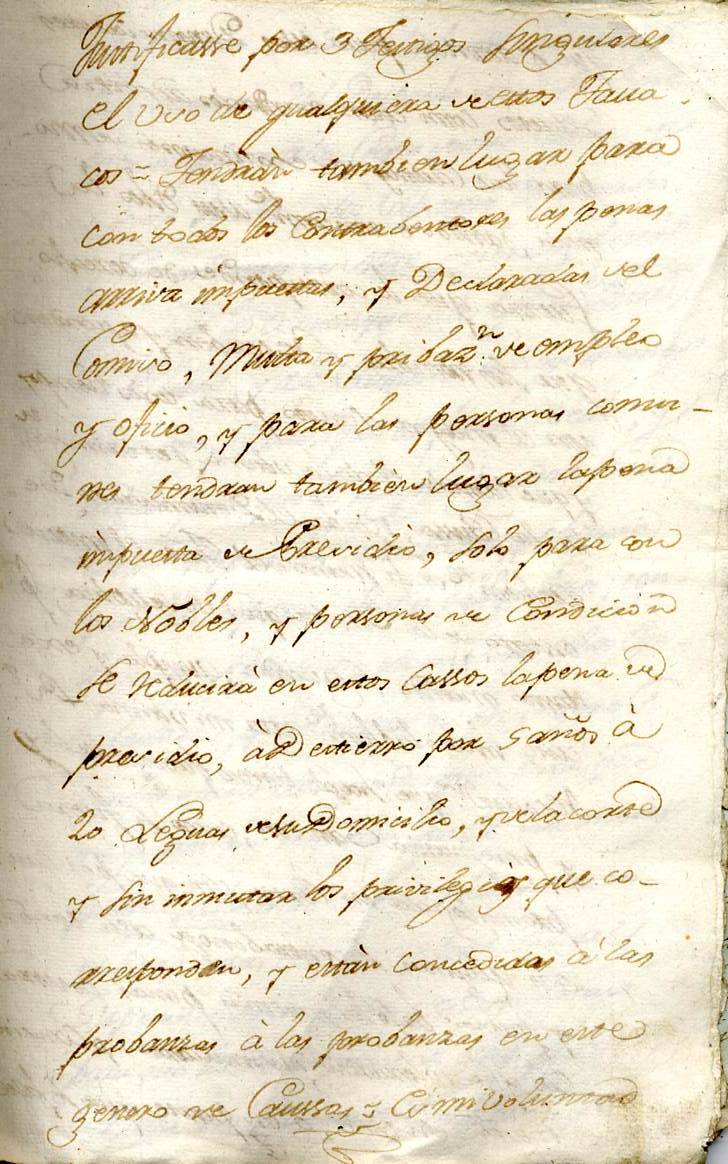 Justificasse por 3 Testigos singulares
el uso de qualquiera de estos Taua
cos = Tendràn tambien lugar para
con todos los Contrabentores las penas
arriva impuestas, y Declaradas del
Comiso, Multa y pribaz.n de empleo
y oficio, y para las personas comu-
nes tendran tambièn lugar la pena
impuesta de Presidio, solo para con
los Nobles, y personas de Condicion
se reducirà en estos Cassos la pena de
presidio, à Destierro por 5 años à
20 Leguas de su Domicilio, y de la corte
y sin inmutar los privilegios que co-
rresponden, y estàn concedidas à las
probanzas à las probanzas en este
genero de Caussas = Es mi voluntad